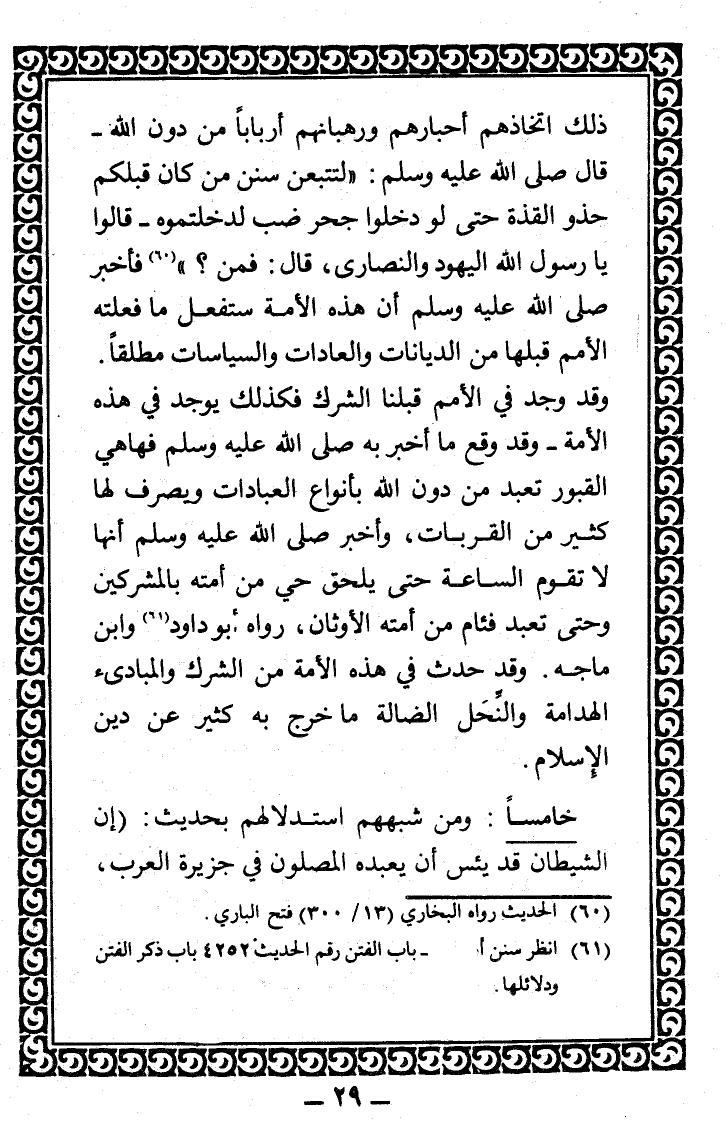 ذلك اتخاذهم أحبارهم ورهبانهم أرباباً من دون الله ـ
قال صلى الله عليه وسلم : «لتتبعن سنن من كان قبلكم
حذو القذة حتى لو دخلوا جحر ضب لدخلتموه ـ قالوا
يا رسول الله اليهود والنصارى، قال : فمن ؟ »(٦٠) فأخبر
صلى الله عليه وسلم أن هذه الأمة ستفعل ما فعلته
الأمم قبلها من الديانات والعادات والسياسات مطلقاً .
وقد وجد في الأمم قبلنا الشرك فكذلك يوجد في هذه
الأمة ـ وقد وقع ما أخبر به صلى الله عليه وسلم فهاهي
القبور تعبد من دون الله بأنواع العبادات ويصرف لها
كثير من القربات، وأخبر صلى الله عليه وسلم أنها
لا تقوم الساعة حتى يلحق حي من أمته بالمشركين
وحتى تعبد فئام من أمته الأوثان، رواه أبو داود(٦١) وابن
ماجه . وقد حدث في هذه الأمة من الشرك والمبادىء
الهدامة والنِّحَل الضالة ما خرج به كثير عن دين
الإسلام .
خامساً : ومن شبههم استدلالهم بحديث : (إن
الشيطان قد يئس أن يعبده المصلون في جزيرة العرب،
(٦٠) الحديث رواه البخاري (١٣/ ٣٠٠) فتح الباري .
(٦١) انظر سنن ـ باب الفتن رقم الحديث ٤٢٥٢ باب ذكر الفتن
ودلائلها .
ـ ٢٩ ـ